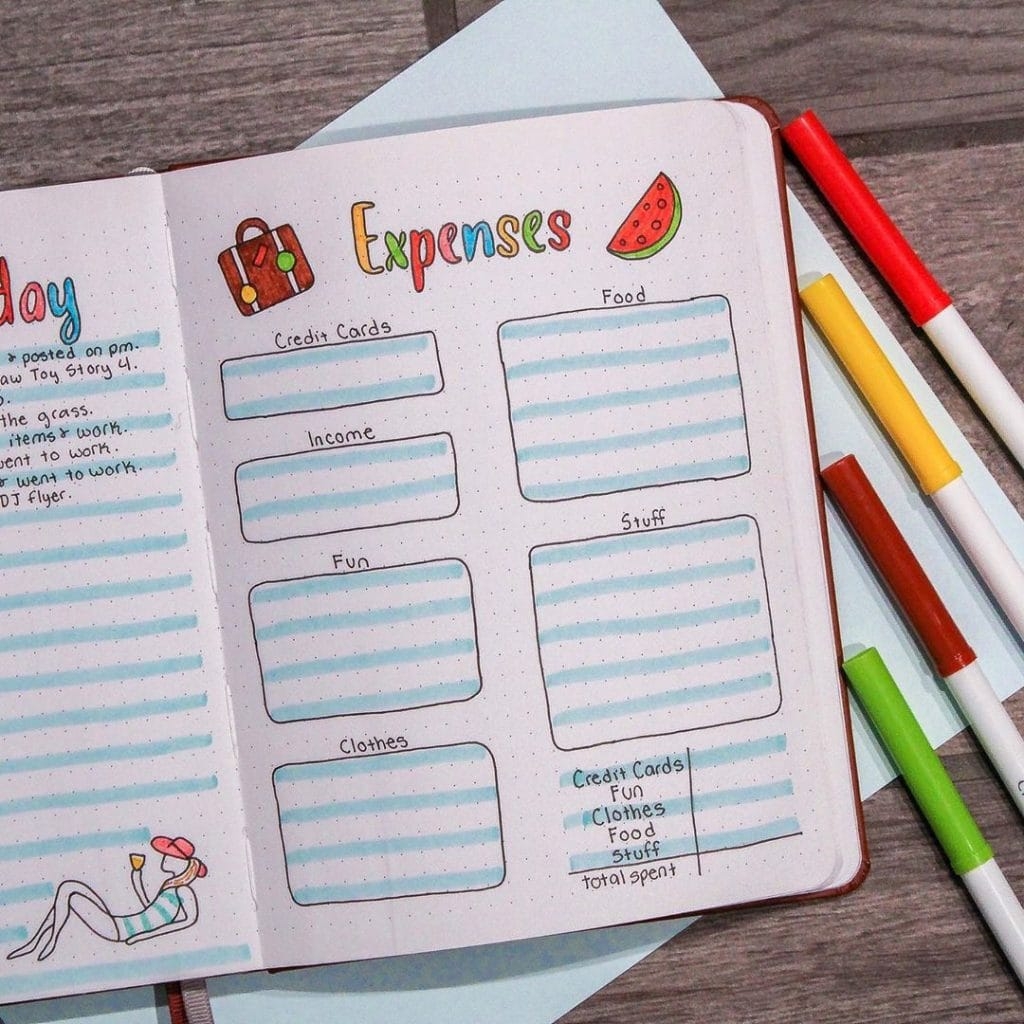 day
& posted on pm.
aw Toy Story 4.
the grass.
items & work.
went to work.
& went to work.
DJ flyer.
Expenses
Credit Cards
Income
Fun
Clothes
Food
Stuff
Credit Cards
Fun
Clothes
Food
Stuff
total spent